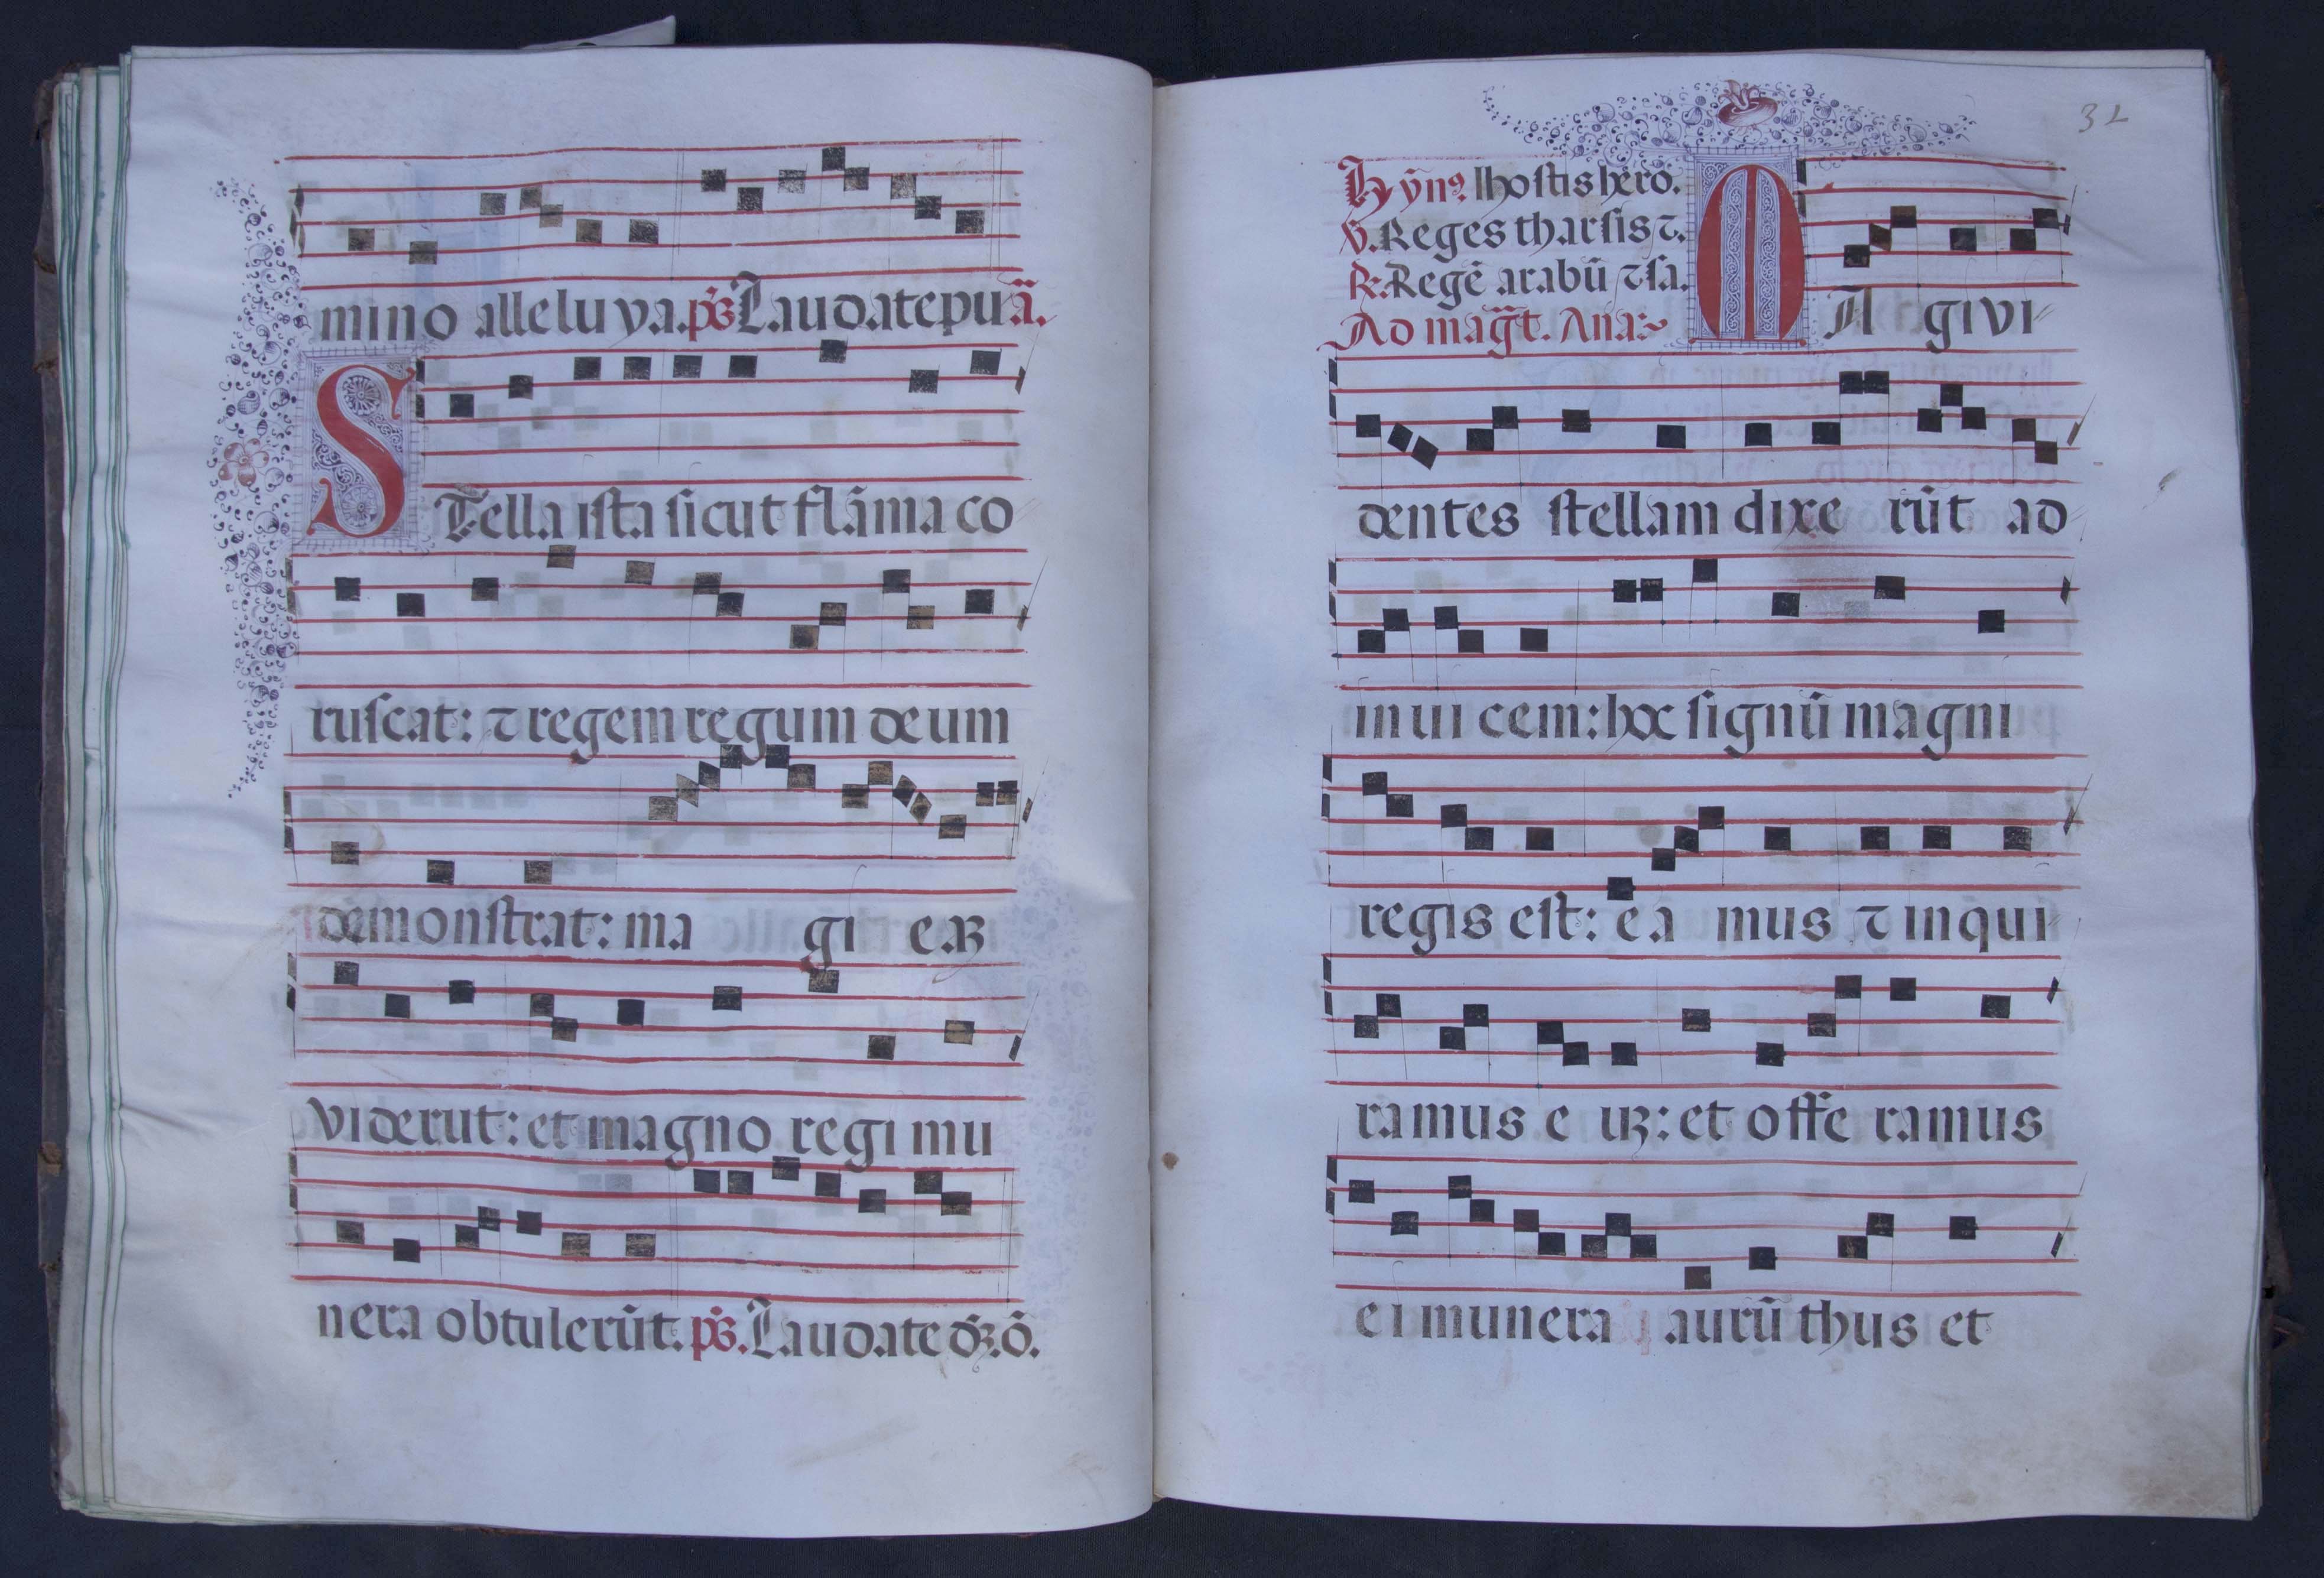 mino alleluya. ps Laudate pu a.
STella ista sicut flāma co
ruscat: ⁊ regem regum deum
demonstrat: ma gi eaꝫ
viderut: et magno regi mu
nera obtulerūt. ps. Laudate dꝫ. ō.
32
Hȳn9. Hostis hero.
V. Reges tharsis ⁊.
R. Regē arabū ⁊ sa.
Ad magt. Ana:
MA givi
dentes stellam dixe rūt ad
inui cem: hoc signū magni
regis est: ea mus ⁊ inqui
ramus e uꝫ: et offe ramus
ei munera aurū thus et